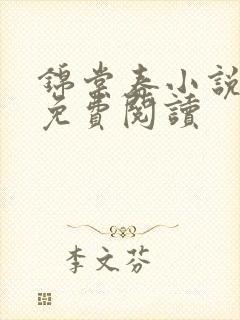 錦堂春小說
免費閱讀
李文芬